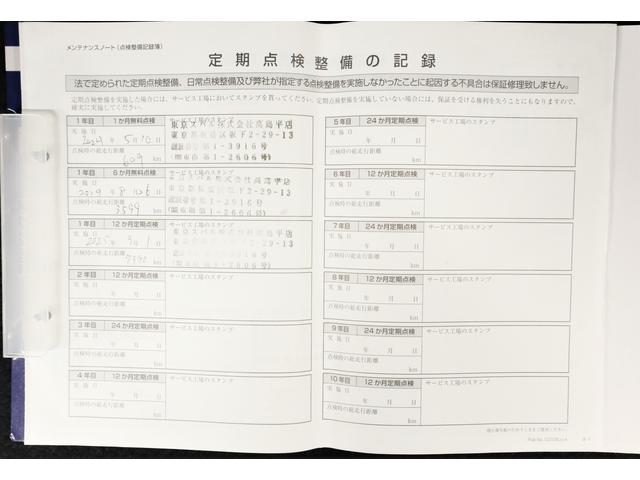 メンテナンスノート(点検整備記録簿)
定期点検整備の記録
法で定められた定期点検整備、日常点検整備及び弊社が指定する点検整備を実施しなかったことに起因する不具合は保証修理致しません。
定期点検整備を実施した場合には、サービス工場においてスタンプを貰ってください。定期点検整備を実施していない場合には、保証を受ける権利を失うことにもなりますので、
確実に実施してください。
1年目 1か月無料点検 サービス工場のスタンプ
実施日
年 5月10日
点検時の総走行距離
609 km
東京スバル株式会社高島平店
2-29-13
1-3916号
1-2606号)
1年目 6か月無料点検 サービス工場のスタンプ
実施日
年 8月26日
点検時の総走行距離
3599 km
東京スバル株式会社高島平店
2-29-13
1-3916号
1年目 12か月定期点検 サービス工場のスタンプ
実施日
2025年 3月1日
点検時の総走行距離
km
2-29-13
1-3916号
1-2606号)
2年目 12か月定期点検 サービス工場のスタンプ
実施日
年 月 日
点検時の総走行距離
km
3年目 24か月定期点検 サービス工場のスタンプ
実施日
年 月 日
点検時の総走行距離
km
4年目 12か月定期点検 サービス工場のスタンプ
実施日
年 月 日
点検時の総走行距離
km
5年目 24か月定期点検 サービス工場のスタンプ
実施日
年 月 日
点検時の総走行距離
km
6年目 12か月定期点検 サービス工場のスタンプ
実施日
年 月 日
点検時の総走行距離
km
7年目 24か月定期点検 サービス工場のスタンプ
実施日
年 月 日
点検時の総走行距離
km
8年目 12か月定期点検 サービス工場のスタンプ
実施日
年 月 日
点検時の総走行距離
km
9年目 24か月定期点検 サービス工場のスタンプ
実施日
年 月 日
点検時の総走行距離
km
10年目 12か月定期点検 サービス工場のスタンプ
実施日
年 月 日
点検時の総走行距離
km